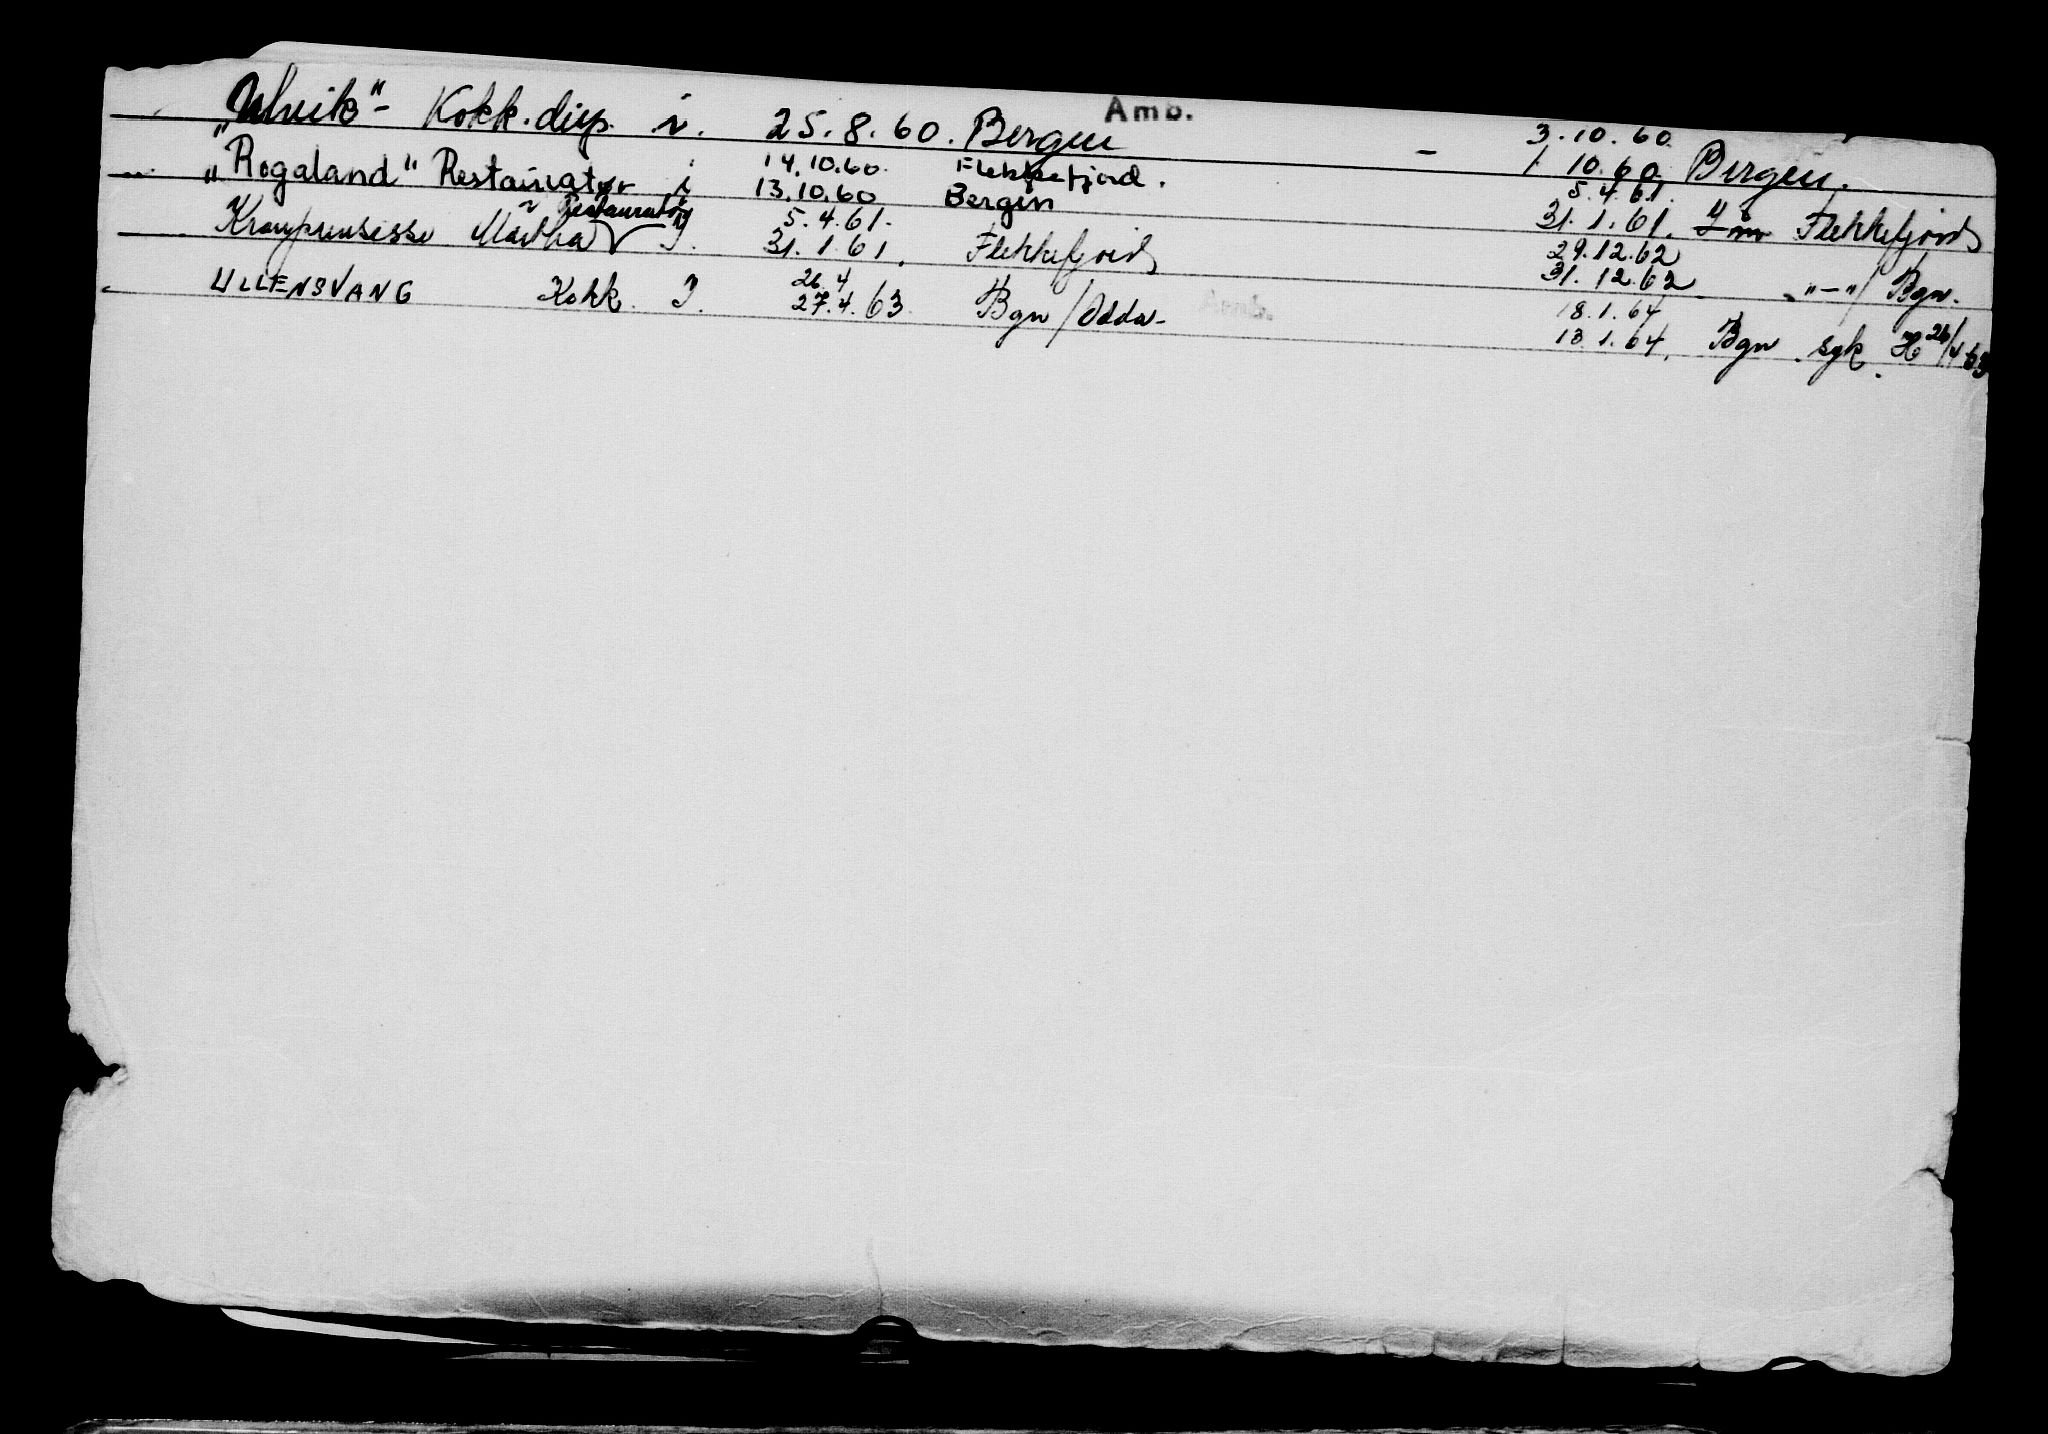 Amb.
"Ulvik"- Kokk. disp. i. 25.8.60. Bergen - 3.10.60.
14.10.60. Flekkefjord. 10.60. Bergen.
"Rogaland" Restauratør i 13.10.60 Bergen 5.4.61.
Restauratør 5.4.61. 31.1.61. Flekkefjord
Kronprinsesse Märtha I. 31.1.61. Flekkefjord 29.12.62
26.4 31.12.62 "-"/ Bgn.
ULLENSVANG Kokk I. 27.4.63 Bgn/Odda- Amb. 18.1.64
13.1.64. Bgn. syk. H 26/4 63